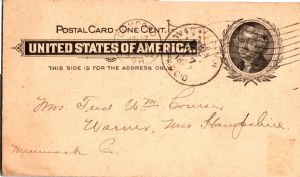 POSTAL CARD - ONE CENT.
UNITED STATES OF AMERICA.
THIS SIDE IS FOR THE ADDRESS ONLY.
Mrs. Fred Wm
Warner, New Hampshire.
Merrimack Co.